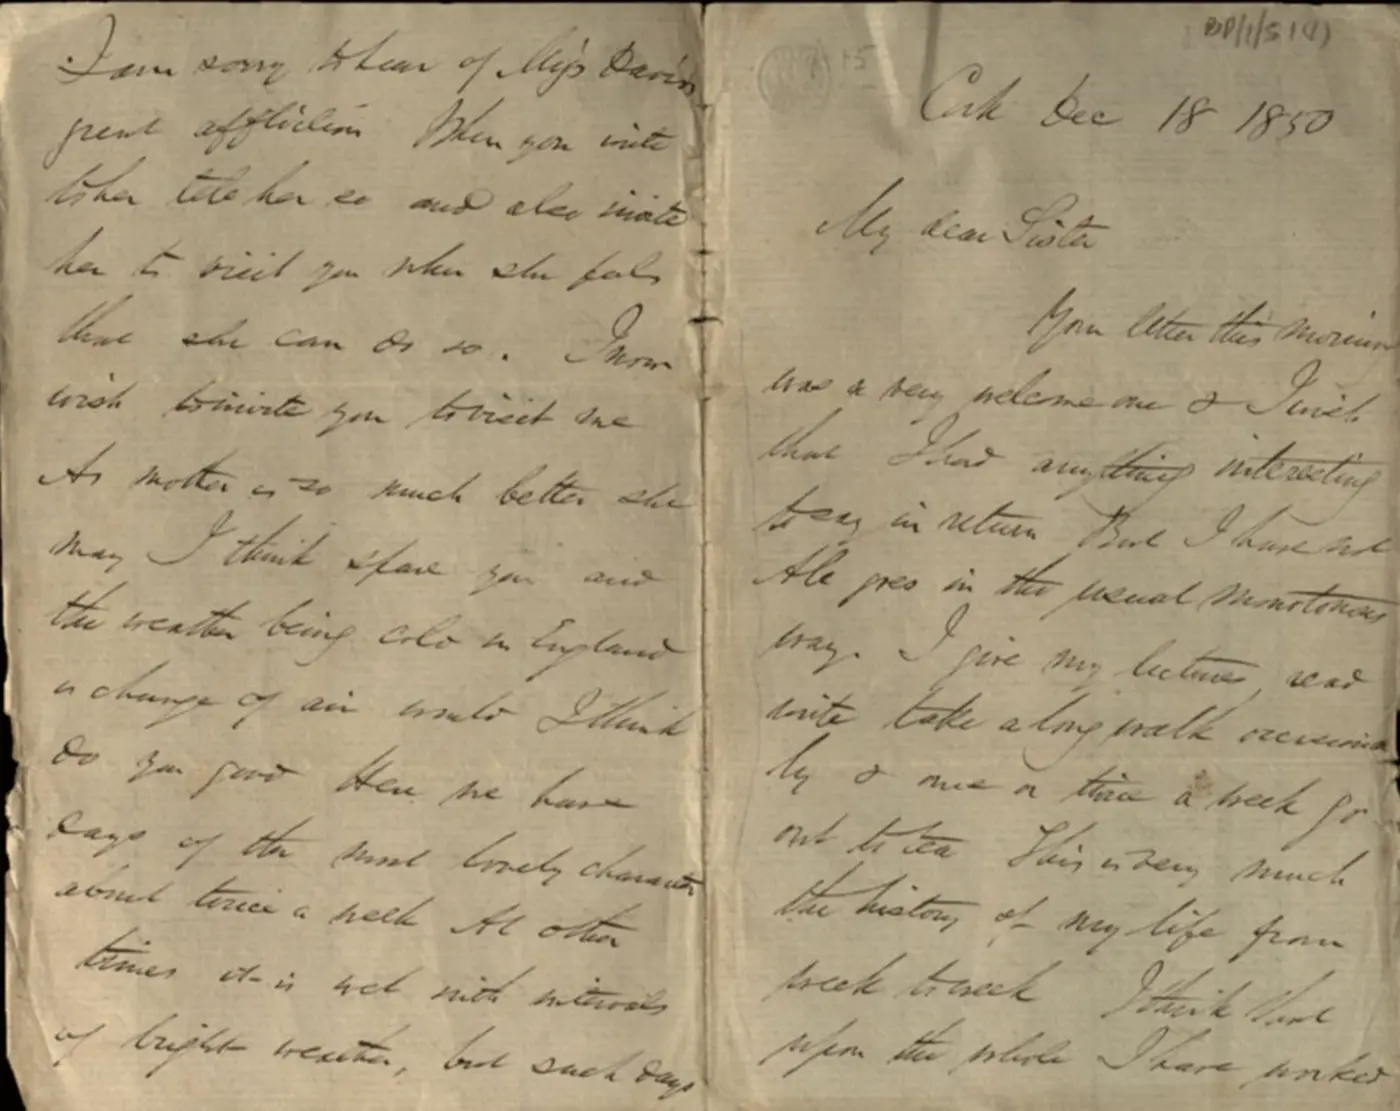 BP/1/51(1)
Cork Dec 18 1850
My dear Sister
Your letter this morning
was a very welcome one & I wish
that I had anything interesting
to say in return But I have not
All goes in the usual monotonous
way. I give my lectures, read
write take a long walk occasional
ly & once or twice a week go
out to tea This is very much
the history of my life from
week to week I think that
upon the whole I have worked
I am sorry to hear of Miss Davis
great affliction When you write
to her tell her so and also invite
her to visit you when she feels
that she can do so. I now
wish to invite you to visit me
As mother is so much better she
may I think spare you and
the weather being cold in England
a change of air would I think
do you good Here we have
days of the most lovely character
about twice a week At other
times it is wet with intervals
of bright weather, but such days